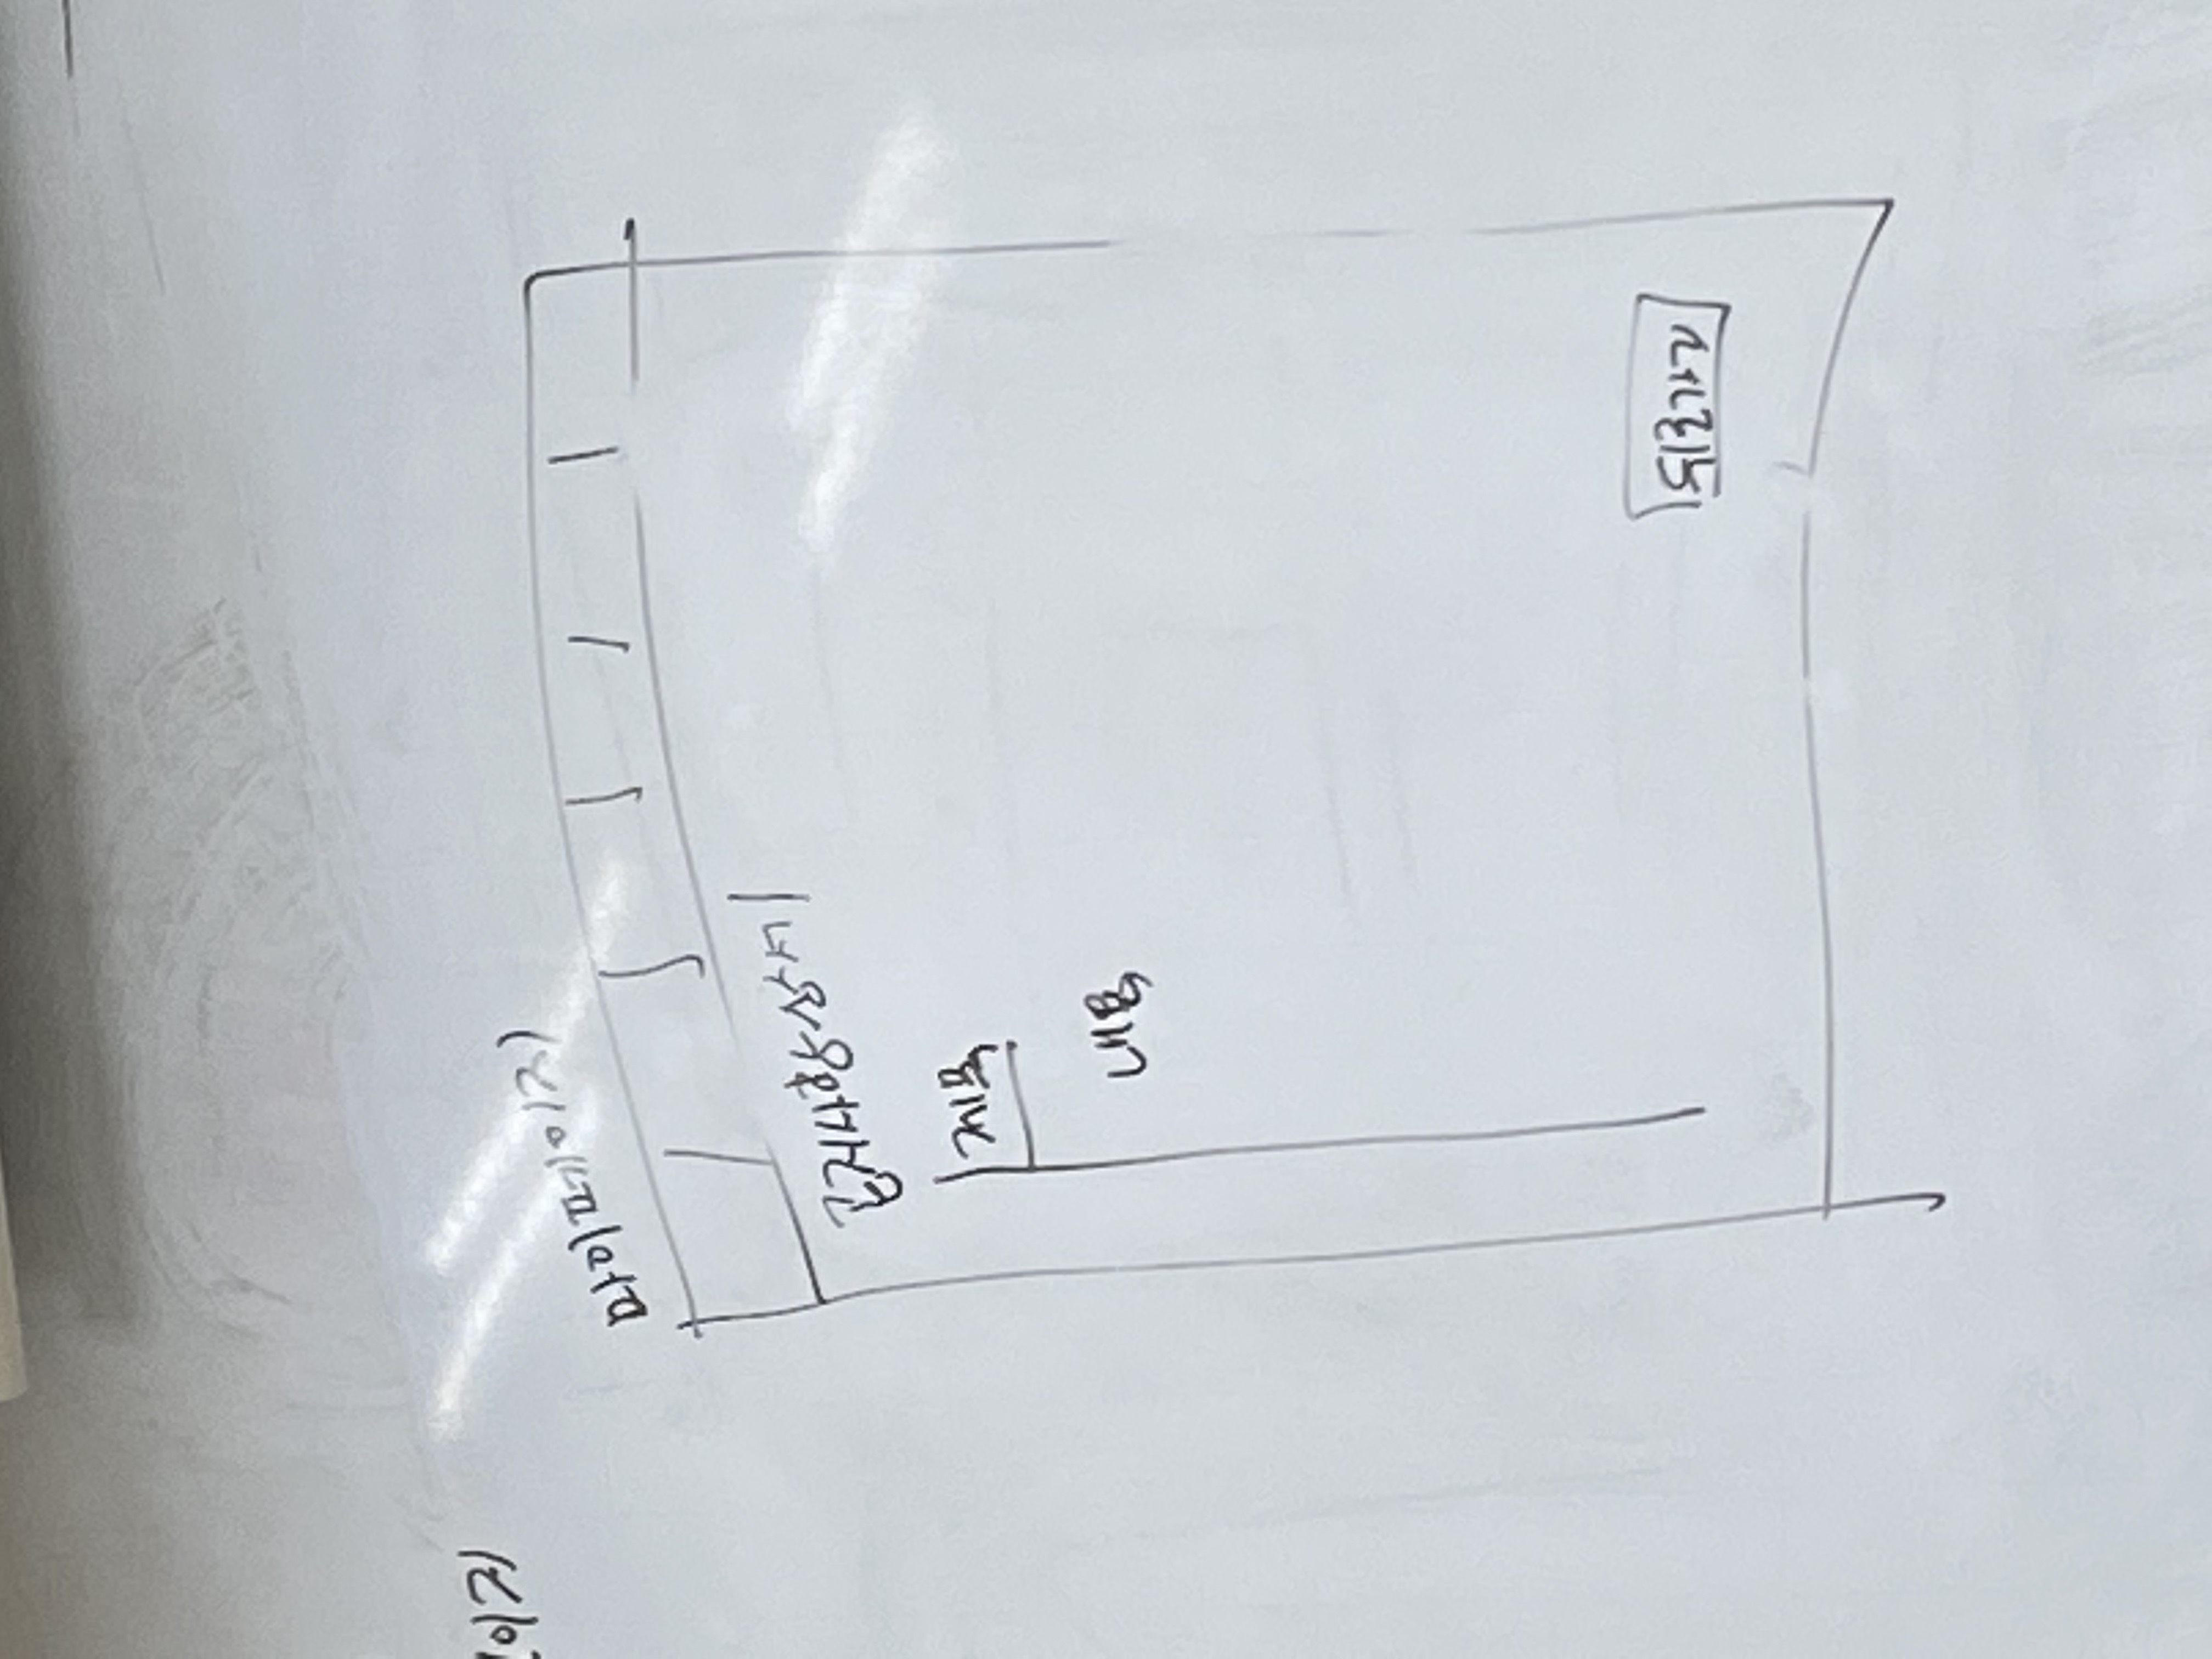 이지
마이페이지
공지사항상세
제목
내용
뒤로가기